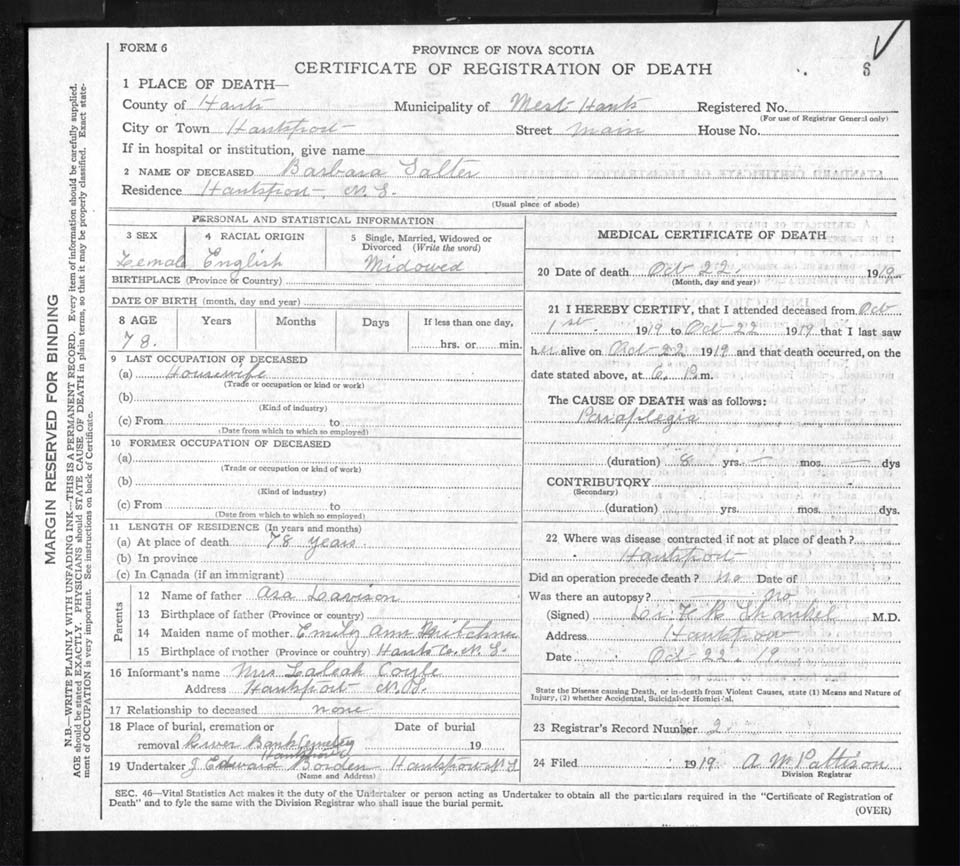 FORM 6
PROVINCE OF NOVA SCOTIA
CERTIFICATE OF REGISTRATION OF DEATH
6
1 PLACE OF DEATH—
County of Hants Municipality of West Hants Registered No.
(For use of Registrar General only)
City or Town Hantsport Street Main House No.
If in hospital or institution, give name
2 NAME OF DECEASED Barbara Salter
Residence Hantsport N.S.
(Usual place of abode)
PERSONAL AND STATISTICAL INFORMATION
3 SEX 4 RACIAL ORIGIN 5 Single, Married, Widowed or Divorced (Write the word)
Female English Widowed
BIRTHPLACE (Province or Country)
DATE OF BIRTH (month, day and year)
8 AGE Years Months Days If less than one day,
78. hrs. or min.
9 LAST OCCUPATION OF DECEASED
(a) Housewife
(Trade or occupation or kind or work)
(b)
(Kind of industry)
(c) From to
(Date from which to which so employed)
10 FORMER OCCUPATION OF DECEASED
(a)
(Trade or occupation or kind of work)
(b)
(Kind of industry)
(c) From to
(Date from which to which so employed)
11 LENGTH OF RESIDENCE (In years and months)
(a) At place of death 78 years.
(b) In province
(c) In Canada (if an immigrant)
Parents
12 Name of father Asa Davison
13 Birthplace of father (Province or country)
14 Maiden name of mother. Emily Ann
15 Birthplace of mother (Province or country) Hants Co. N.S.
16 Informant's name Mrs Coyle
Address Hantsport N.S.
17 Relationship to deceased none
18 Place of burial, cremation or Date of burial
removal River Bank Cemetery 19
Hantsport
19 Undertaker J Edward Borden Hantsport N S
(Name and Address)
MEDICAL CERTIFICATE OF DEATH
20 Date of death Oct 22. 1919
(Month, day and year)
21 I HEREBY CERTIFY, that I attended deceased from Oct
1st. 1919 to Oct 22 1919 that I last saw
her alive on Oct 22 1919 and that death occurred, on the
date stated above, at 6. P.m.
The CAUSE OF DEATH was as follows:
Paraplegia
(duration) 8 yrs. — mos. — dys
CONTRIBUTORY
(Secondary)
(duration) yrs. mos. dys.
22 Where was disease contracted if not at place of death?
Hantsport
Did an operation precede death? no Date of
Was there an autopsy? no
(Signed) Shankel M.D.
Address Hantsport
Date Oct 22. 19
State the Disease causing Death, or in death from Violent Causes, state (1) Means and Nature of
Injury, (2) whether Accidental, Suicidal or Homicidal.
23 Registrar's Record Number 2
24 Filed 1919 A. M Pattison
Division Registrar
SEC. 46—Vital Statistics Act makes it the duty of the Undertaker or person acting as Undertaker to obtain all the particulars required in the "Certificate of Registration of
Death" and to fyle the same with the Division Registrar who shall issue the burial permit.
(OVER)
MARGIN RESERVED FOR BINDING
N.B.—WRITE PLAINLY WITH UNFADING INK—THIS IS A PERMANENT RECORD. Every item of information should be carefully supplied.
AGE should be stated EXACTLY. PHYSICIANS should STATE CAUSE OF DEATH in plain terms, so that it may be properly classified. Exact state-
ment of OCCUPATION is very important. See instructions on back of Certificate.